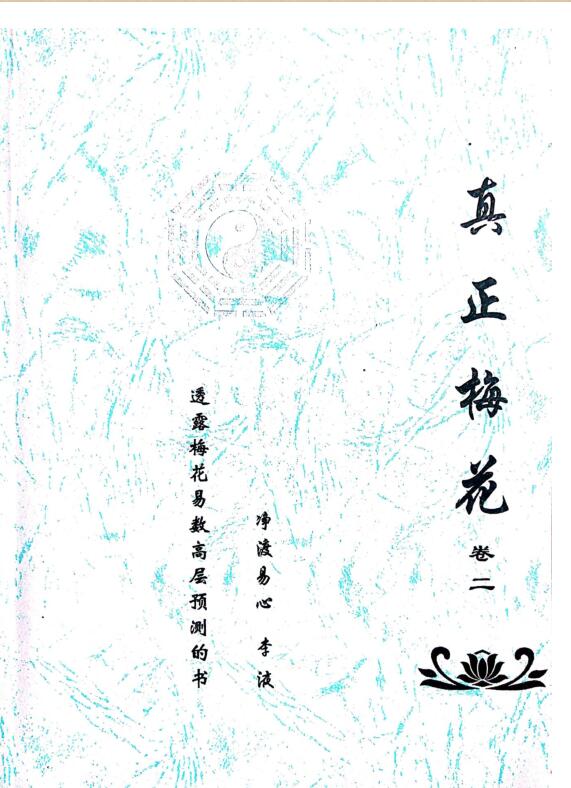 真正梅花 卷二
净渡易心 李液
透露梅花易数高层预测的书